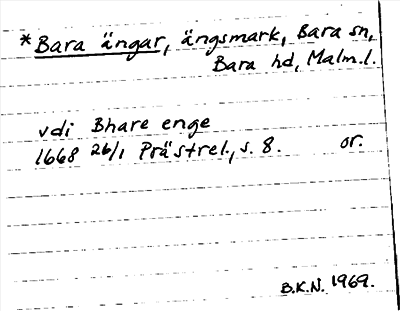 *Bara ängar, ängsmark, Bara sn,
Bara hd, Malm.l.
vdi Bhare enge
1668 26/1 Prästrel., s. 8. or.
B.K.N. 1969.